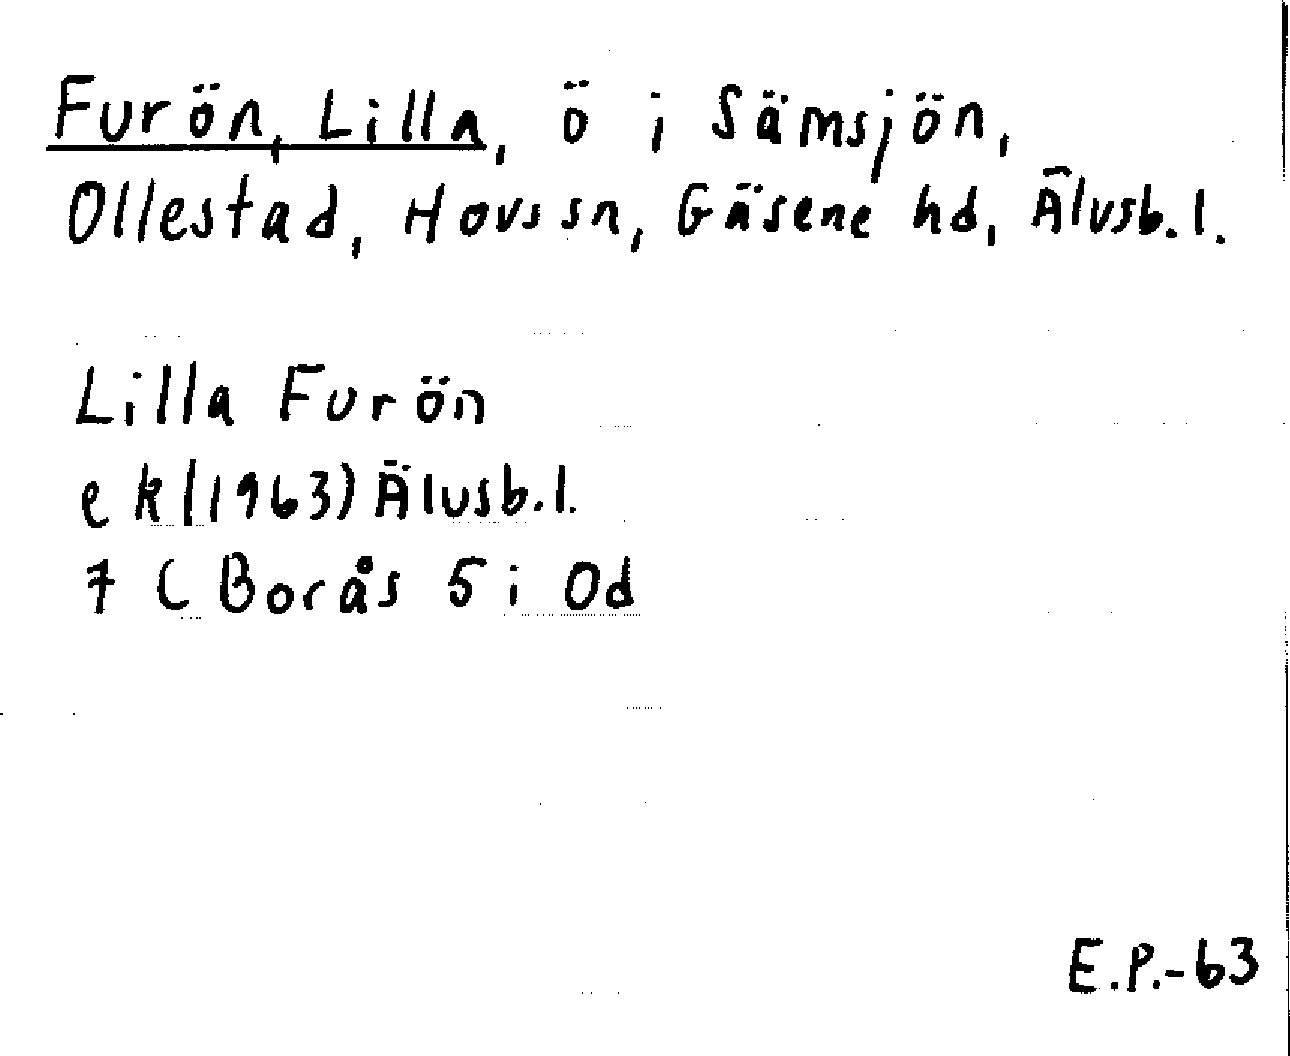 Furön, Lilla, ö i Sämsjön,
Ollestad, Hovs sn, Gäsene hd, Älvsb. l.
Lilla Furön
ek (1963) Älvsb. l.
7 C Borås 5 i Od
E.P.-63